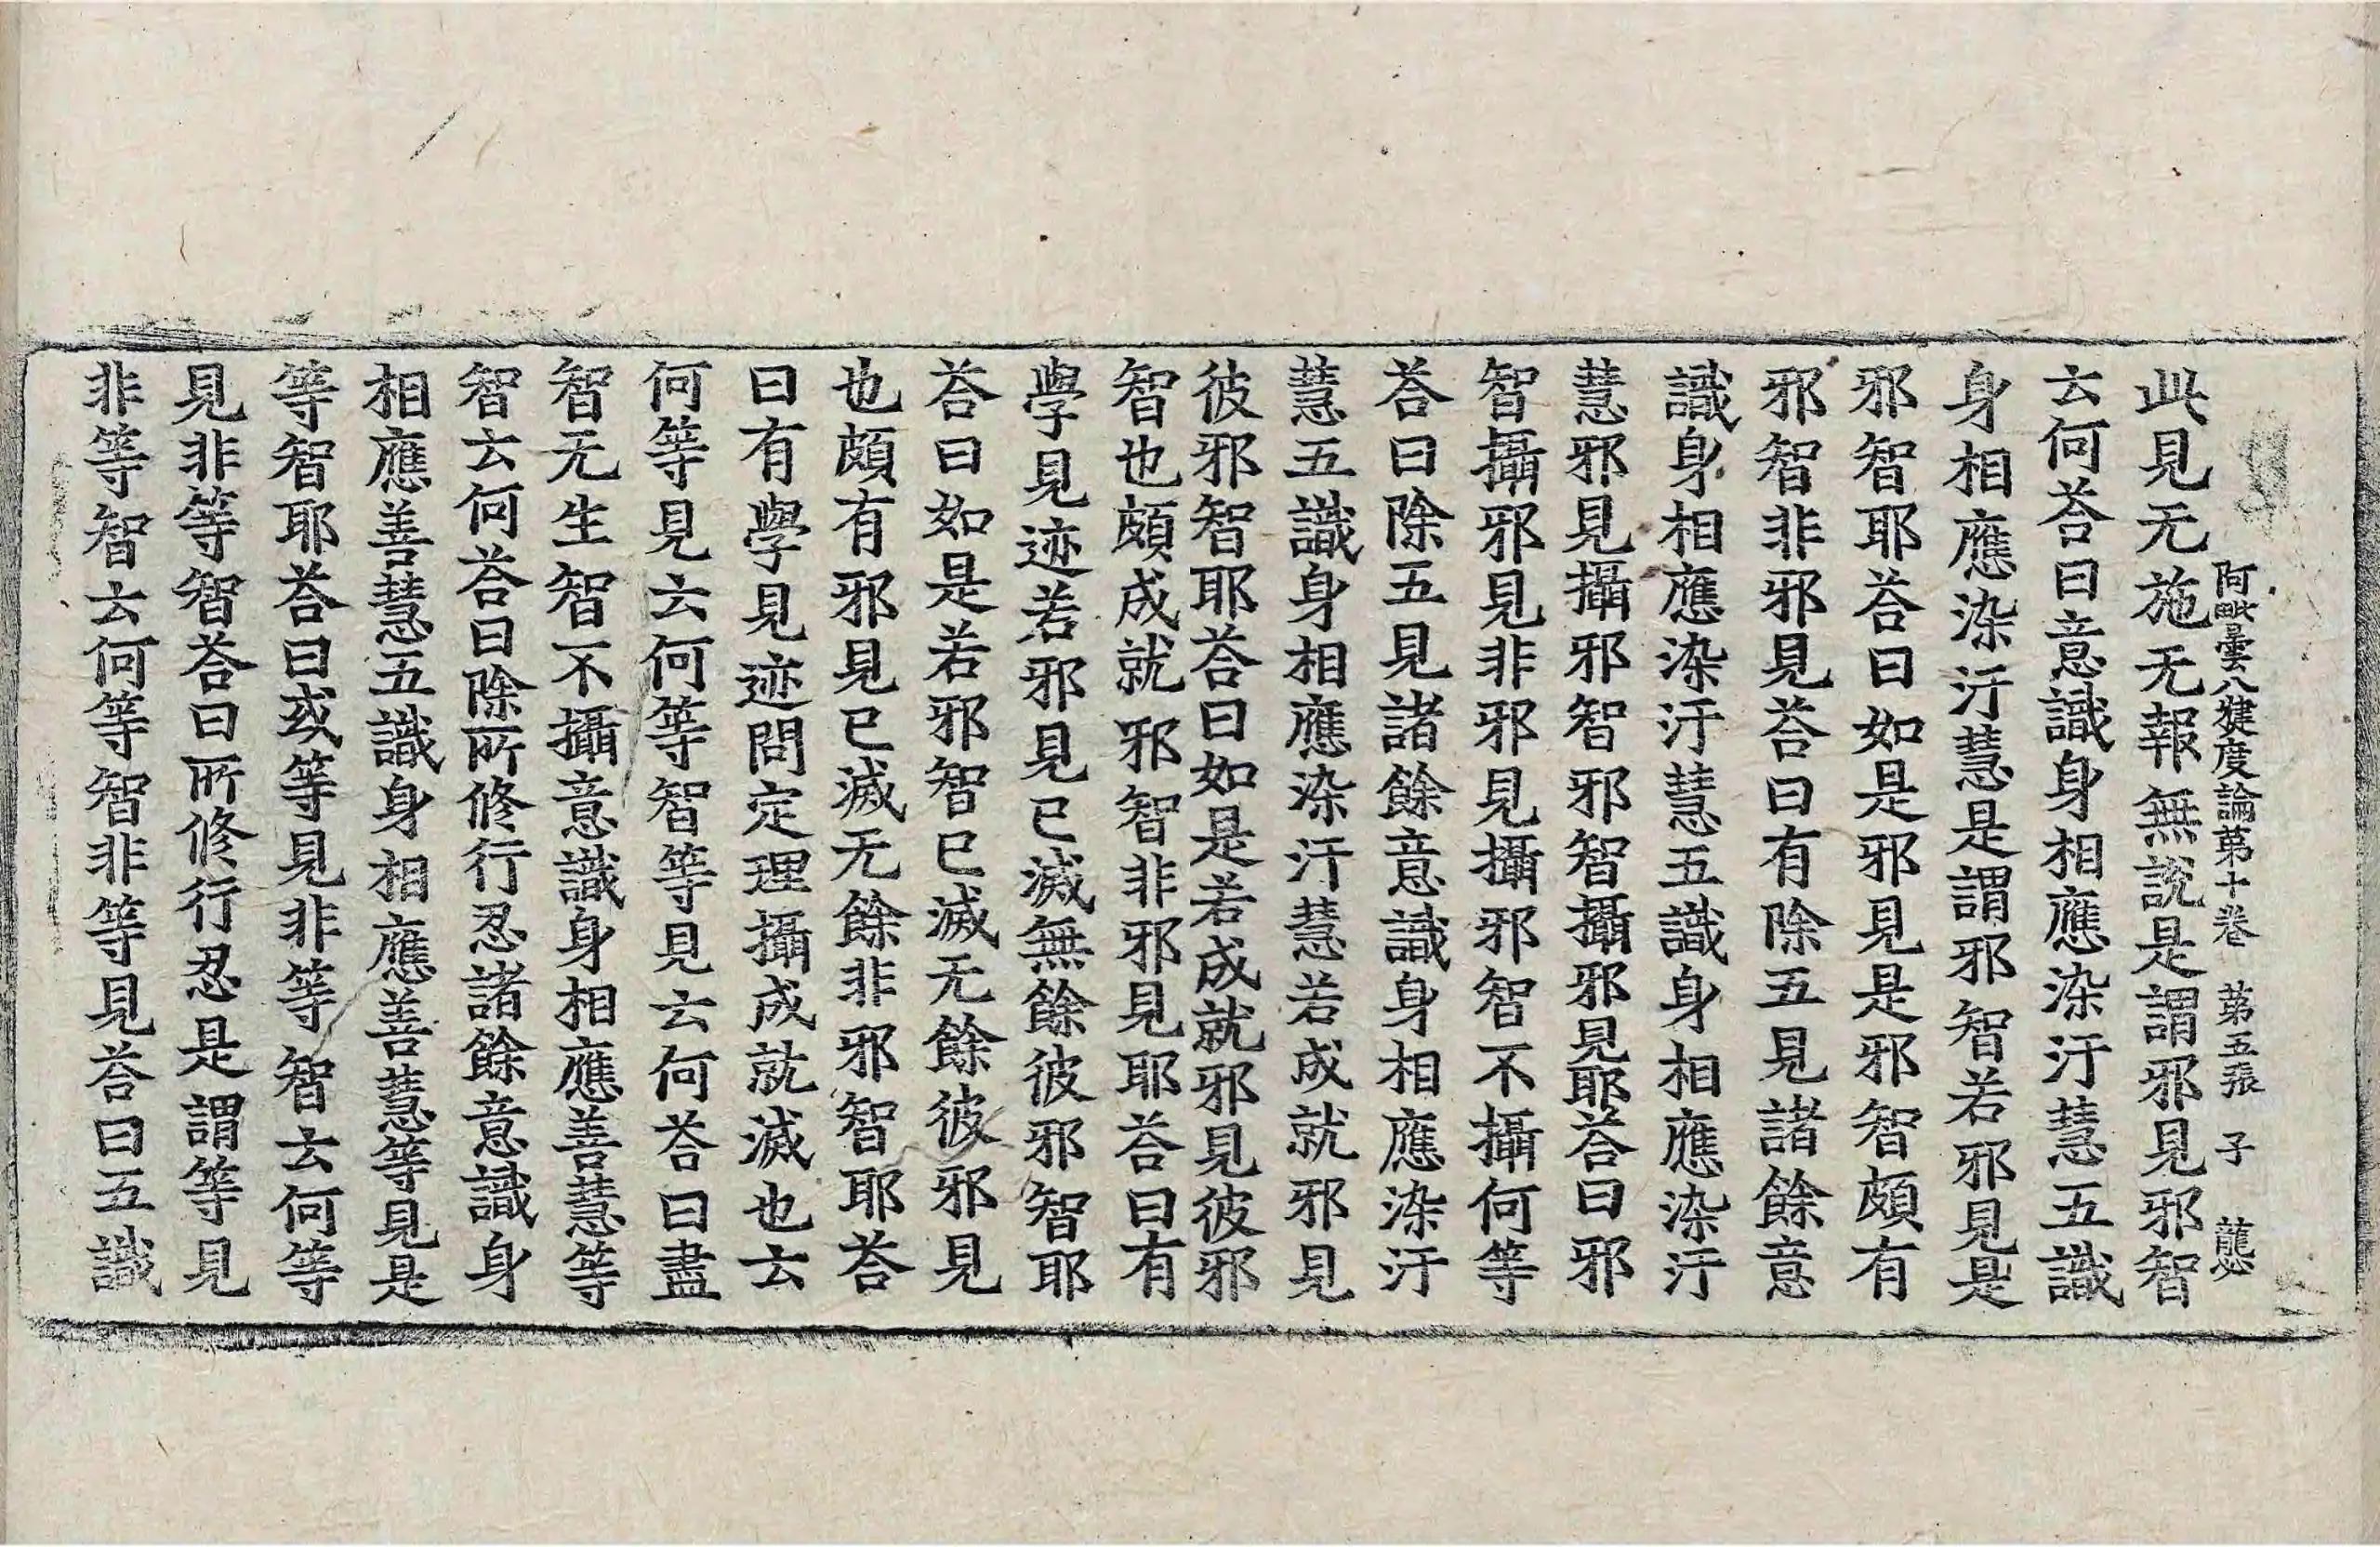 阿毗曇八犍度論第十卷 第五張 子
此見无施无報無說是謂邪見邪智
云何荅曰意識身相應染汙慧五識
身相應染汙慧是謂邪智若邪見是
邪智耶荅曰如是邪見是邪智頗有
邪智非邪見荅曰有除五見諸餘意
識身相應染汙慧五識身相應染汙
慧邪見攝邪智邪智攝邪見耶荅曰邪
智攝邪見非邪見攝邪智不攝何等
荅曰除五見諸餘意識身相應染汙
慧五識身相應染汙慧若成就邪見
彼邪智耶荅曰如是若成就邪見彼邪
智也頗成就邪智非邪見耶荅曰有
學見迹若邪見已滅無餘彼邪智耶
荅曰如是若邪智已滅无餘彼邪見
也頗有邪見已滅无餘非邪智耶荅
曰有學見迹問定理攝成就滅也云
何等見云何等智等見云何荅曰盡
智无生智不攝意識身相應善慧等
智云何荅曰除所修行忍諸餘意識身
相應善慧五識身相應善慧等見是
等智耶荅曰或等見非等智云何等
見非等智荅曰所修行忍是謂等見
非等智云何等智非等見荅曰五識